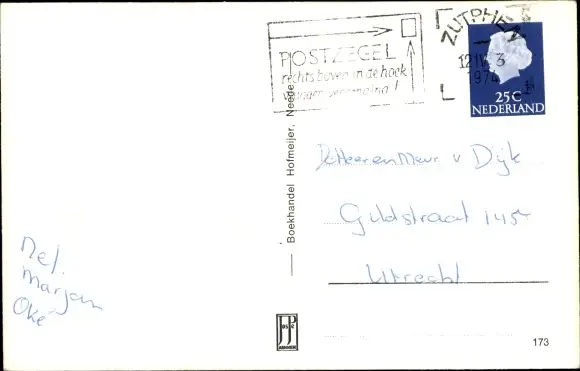 POSTZEGEL
rechts boven in de hoek
ZUTPHEN
12 IV 3
1974
25 C
NEDERLAND
Boekhandel Hofmeijer, Neede
De Heer en Mevr v Dijk
Gildstraat 145
Utrecht
Nel,
Marjan
Oké
JOSPÉ
ARNHEM
173